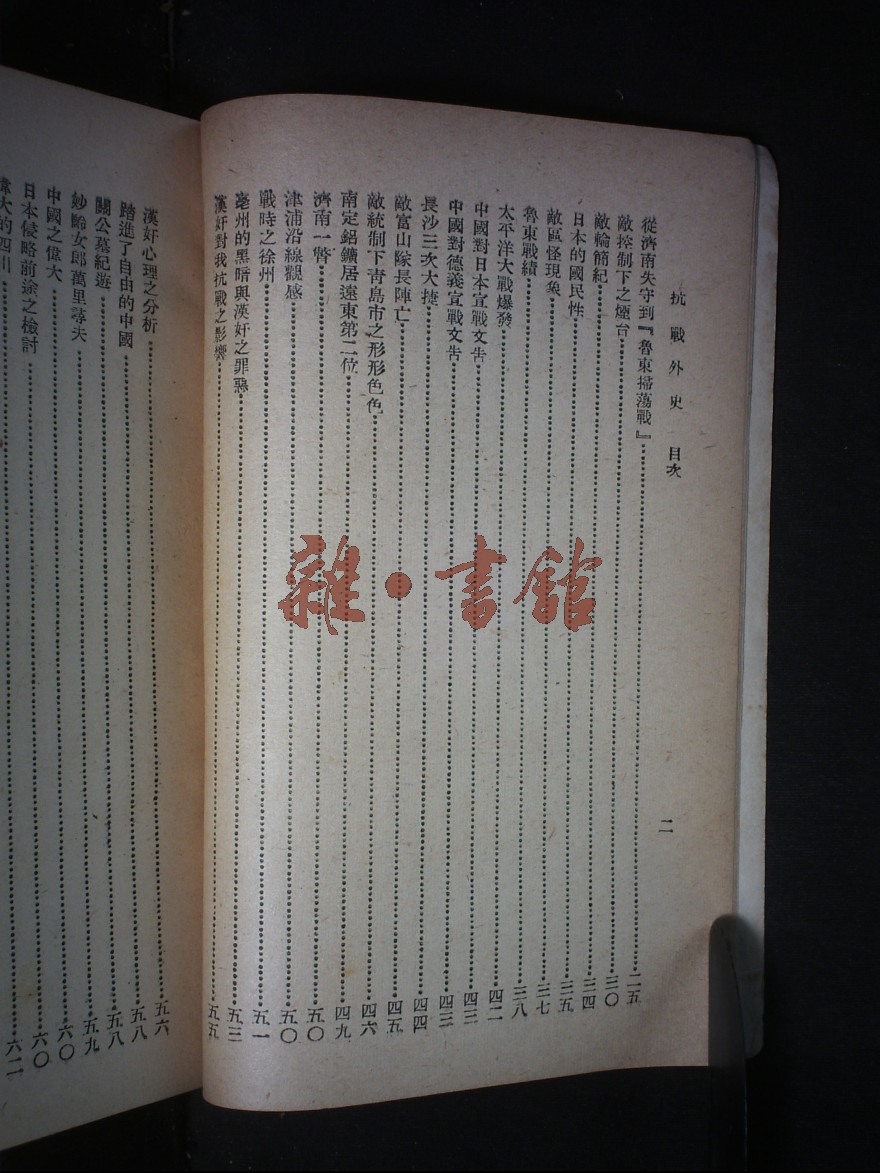 抗戰外史　目次
二
從濟南失守到『魯東掃蕩戰』………二五
敵控制下之煙台………三〇
敵輪簡紀………三四
日本的國民性………三五
敵區怪現象………三七
魯東戰績………三八
太平洋大戰爆發………四二
中國對日本宣戰文告………四三
中國對德義宣戰文告………四三
長沙三次大捷………四四
敵富山隊長陣亡………四五
敵統制下青島市之形形色色………四六
南定鋁鑛居遠東第二位………四九
濟南一瞥………五〇
津浦沿線觀感………五〇
戰時之徐州………五一
亳州的黑暗與漢奸之罪惡………五三
漢奸對我抗戰之影響………五五
漢奸心理之分析………五六
踏進了自由的中國………五八
關公墓紀遊………五八
妙齡女郎萬里尋夫………五九
中國之偉大………六〇
日本侵略前途之檢討………六〇
偉大的四川………六二
雜・書館